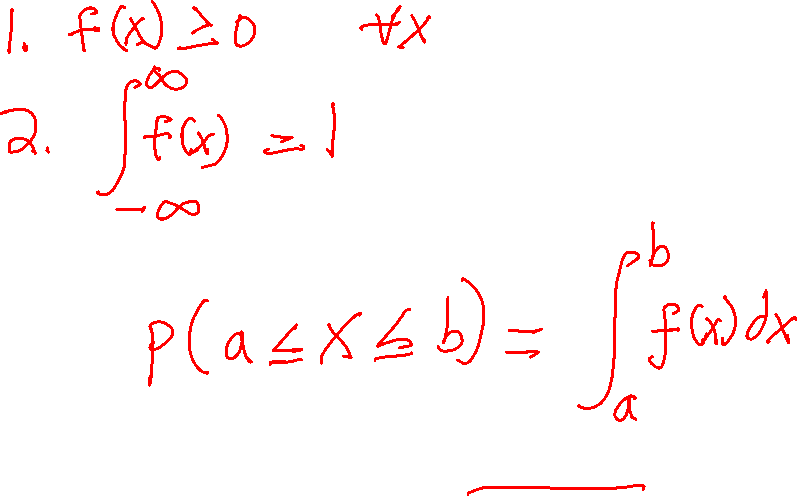 1. f(x) ≥ 0 ∀x
2. ∫_{-∞}^{∞} f(x) = 1
P(a ≤ X ≤ b) = ∫_a^b f(x) dx